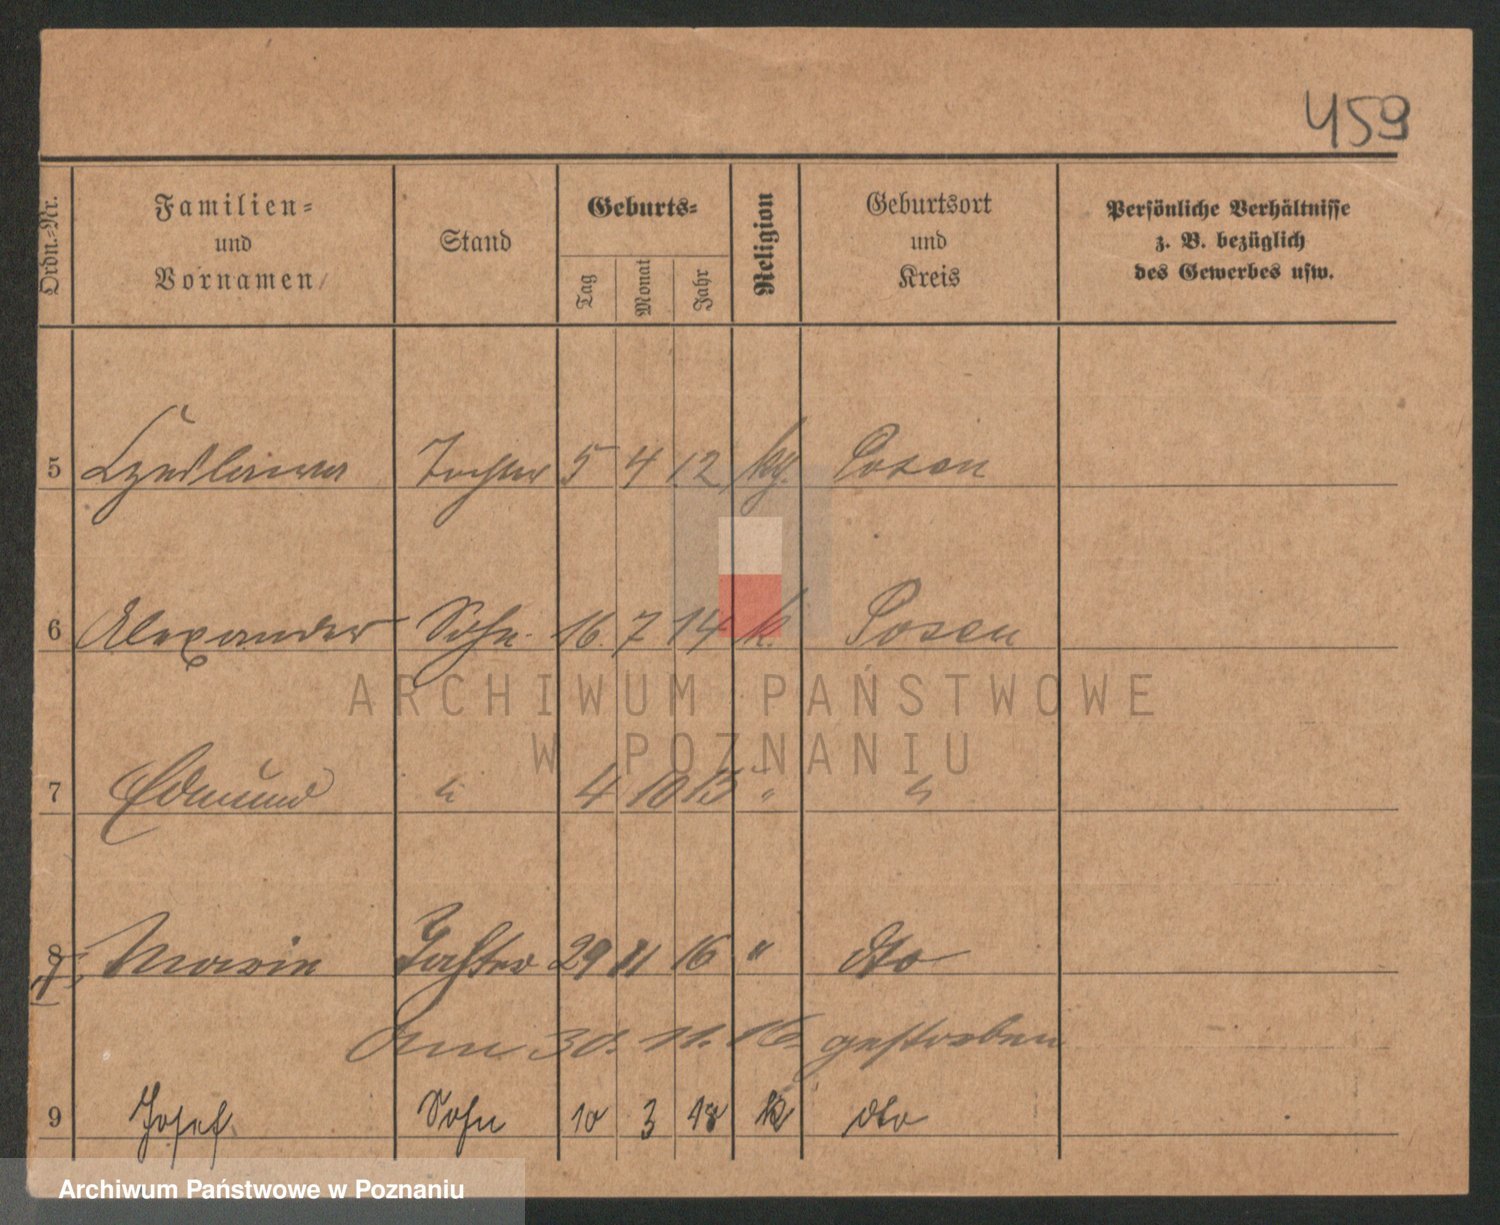 459
Ordn.-Nr.
Familien-
und
Vornamen
Stand
Geburts-
Tag
Monat
Jahr
Religion
Geburtsort
und
Kreis
Persönliche Verhältnisse
z. B. bezüglich
des Gewerbes usw.
5 Tochter 5 4 12 Posen
6 Alexander Sohn 16. 7 14 k. Posen
7 Edmund " 4 10 13 " "
8 Maria Tochter 29 11 16 " dto
Am 30. 11. 16. gestorben
9 Josef Sohn 10 3 18 k dto
ARCHIWUM PAŃSTWOWE
W POZNANIU
Archiwum Państwowe w Poznaniu